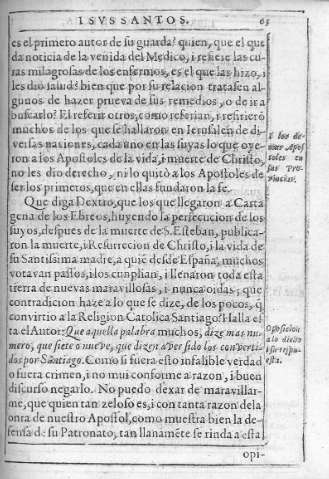 I SVS SANTOS. 65
es el primero autor de su guarda? quien, que el que
da noticia de la venida del Medico, i refiere las cu
ras milagrosas de los enfermos, es el que las hizo, i
les dio salud? bien que por su relacion tratasen al
gunos de hazer prueva de sus remedios, o de ir a
buscarlo? El referir otros, como referian, i refirierō
muchos de los que se hallaron en Ierusalen de di
versas naciones, cada uno en las suyas lo que oye
ron a los Apostoles de la vida, i muerte de Christo,
no les dio derecho, ni lo quitò a los Apostoles de
ser los primeros, que en ellas fundaron la fe.
Que diga Dextro, que los que llegaron a Carta
gena de los Ebreos, huyendo la persecucion de los
suyos, despues de la muerte de S. Esteban, publica-
ron la muerte, i Resurrecion de Christo, i la vida de
su Santisima madre, a quiē desde España, muchos
votavan pasos, i los cunplian, i llenaron toda esta
tierra de nuevas maravillosas, i nunca oidas; que
contradicion haze a lo que se dize, de los pocos, q
convirtio a la Religion Catolica Santiago? Halla es
ta el Autor: Que aquella palabra muchos, dize mas nu-
mero, que siete o nueve, que dizen aver sido los converti-
dos por Santiago. Como si fuera esto infalible verdad
o fuera crimen, i no mui conforme a razon, i buen
discurso negarlo. No puedo dexar de maravillar-
me, que quien tan zeloso es, i con tanta razon dela
onra de nuestro Apostol, como muestra bien la de-
fensa de su Patronato, tan llanamēte se rinda a esta
opi-
I los de
mas Apos
toles en
sus Pro
vincias.
Oposicion
a lo dicho
i su respu
esta.